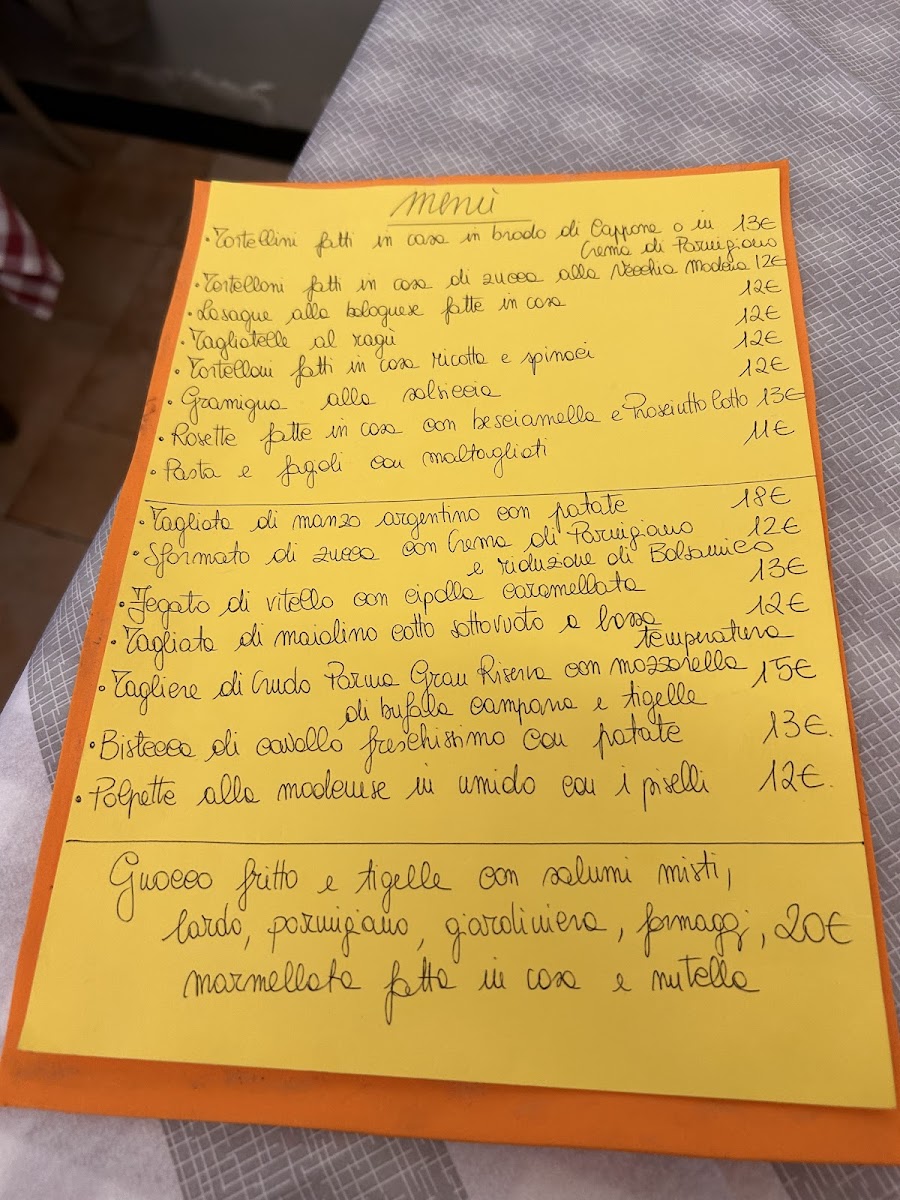 menù
· Tortellini fatti in casa in brodo di Cappone o in 13€
Crema di Parmigiano
· Tortelloni fatti in casa di zucca alla Vecchia Modena 12€
· Lasagne alla bolognese fatte in casa 12€
· Tagliatelle al ragù 12€
· Tortelloni fatti in casa ricotta e spinaci 12€
· Gramigna alla salsiccia 12€
· Rosette fatte in casa con besciamella e Prosciutto Cotto 13€
· Pasta e fagioli con maltagliati 11€
· Tagliata di manzo argentino con patate 18€
· Sformato di zucca con Crema di Parmigiano 12€
e riduzione di Balsamico
· Fegato di vitello con cipolla caramellata 13€
· Tagliata di maialino cotto sottovuoto a bassa 12€
temperatura
· Tagliere di Crudo Parma Gran Riserva con mozzarella 15€
di bufala campana e tigelle
· Bistecca di cavallo freschissimo con patate 13€.
· Polpette alla modenese in umido con i piselli 12€.
Gnocco fritto e tigelle con salumi misti,
lardo, parmigiano, giardiniera, formaggi, 20€
marmellata fatta in casa e nutella